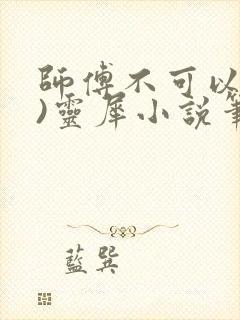 師傅不可以
)靈犀小說筆
藍巽